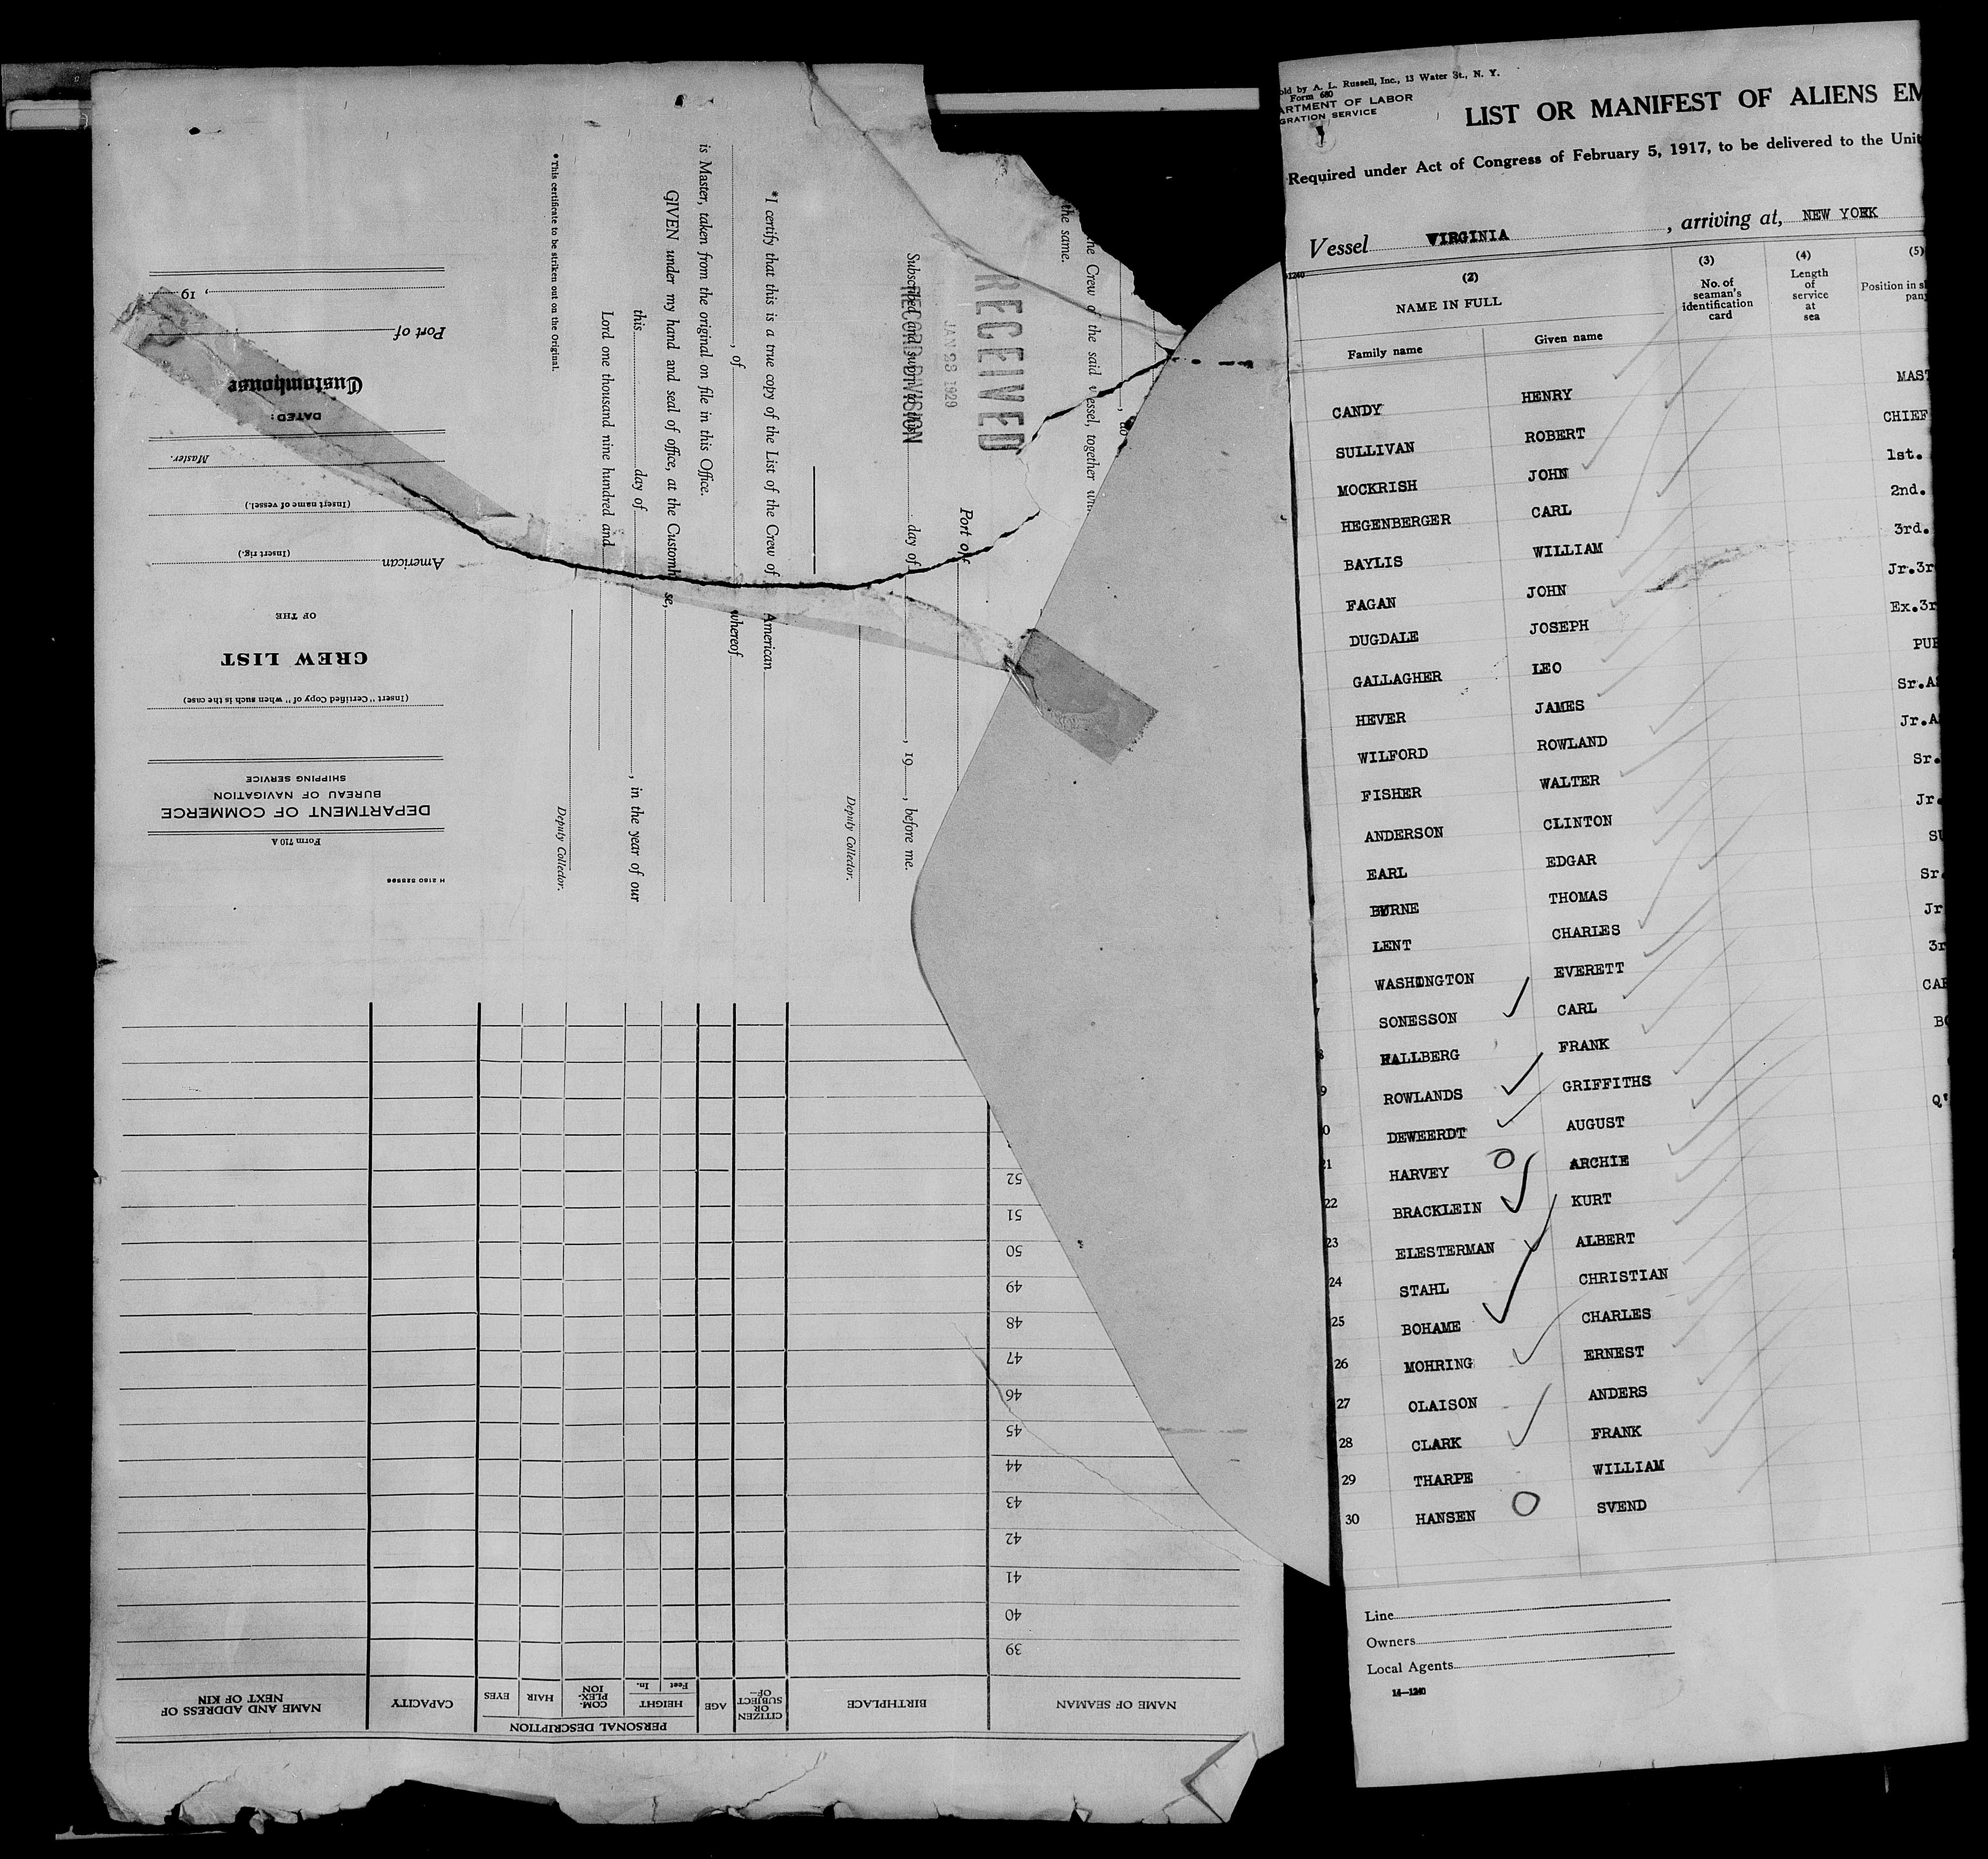 H 2160 528598
Form 710 A
DEPARTMENT OF COMMERCE
BUREAU OF NAVIGATION
SHIPPING SERVICE
(Insert "Certified Copy of" when such is the case)
CREW LIST
OF THE
American
(Insert rig.)
(Insert name of vessel.)
Master.
DATED:
Customhouse
Port of
, 19
* This certificate to be striken out on the Original.
*I certify that this is a true copy of the List of the Crew of American
, of whereof
is Master, taken from the original on file in this Office.
GIVEN under my hand and seal of office, at the Customh se,
this day of , in the year of our
Lord one thousand nine hundred and
Deputy Collector.
, do
the Crew of the said vessel, together
the same.
RECEIVED
JAN 23 1929
RECORD DIVISION
Port of
Subscribed and sworn to this day of , 19 , before me.
Deputy Collector.
NAME OF SEAMAN
BIRTHPLACE
CITIZEN OR SUBJECT OF—
AGE
PERSONAL DESCRIPTION
HEIGHT
Feet In.
COM-PLEX-ION
HAIR
EYES
CAPACITY
NAME AND ADDRESS OF NEXT OF KIN
39
40
41
42
43
44
45
46
47
48
49
50
51
52
old by A. L. Russell, Inc., 13 Water St., N. Y.
Form 680
ARTMENT OF LABOR
GRATION SERVICE
LIST OR MANIFEST OF ALIENS EM
Required under Act of Congress of February 5, 1917, to be delivered to the Unit
Vessel VIRGINIA , arriving at, NEW YORK
1240
(2) (3) (4) (5)
NAME IN FULL
No. of seaman's identification card
Length of service at sea
Position in s
pan
Family name Given name
CANDY HENRY MAST
SULLIVAN ROBERT CHIEF
MOCKRISH JOHN 1st.
HEGENBERGER CARL 2nd.
BAYLIS WILLIAM 3rd.
FAGAN JOHN Jr.3r
DUGDALE JOSEPH Ex.3r
GALLAGHER LEO PUR
HEVER JAMES Sr.AS
WILFORD ROWLAND Jr.A
FISHER WALTER Sr.
ANDERSON CLINTON Jr.
EARL EDGAR SU
BYRNE THOMAS Sr.
LENT CHARLES Jr
WASHINGTON EVERETT 3r
SONESSON CARL CAR
HALLBERG FRANK BO
9 ROWLANDS GRIFFITHS
0 DEWEERDT AUGUST Q'
21 HARVEY ARCHIE
22 BRACKLEIN KURT
23 ELESTERMAN ALBERT
24 STAHL CHRISTIAN
25 BOHAME CHARLES
26 MOHRING ERNEST
27 OLAISON ANDERS
28 CLARK FRANK
29 THARPE WILLIAM
30 HANSEN SVEND
Line
Owners
Local Agents
14—1240